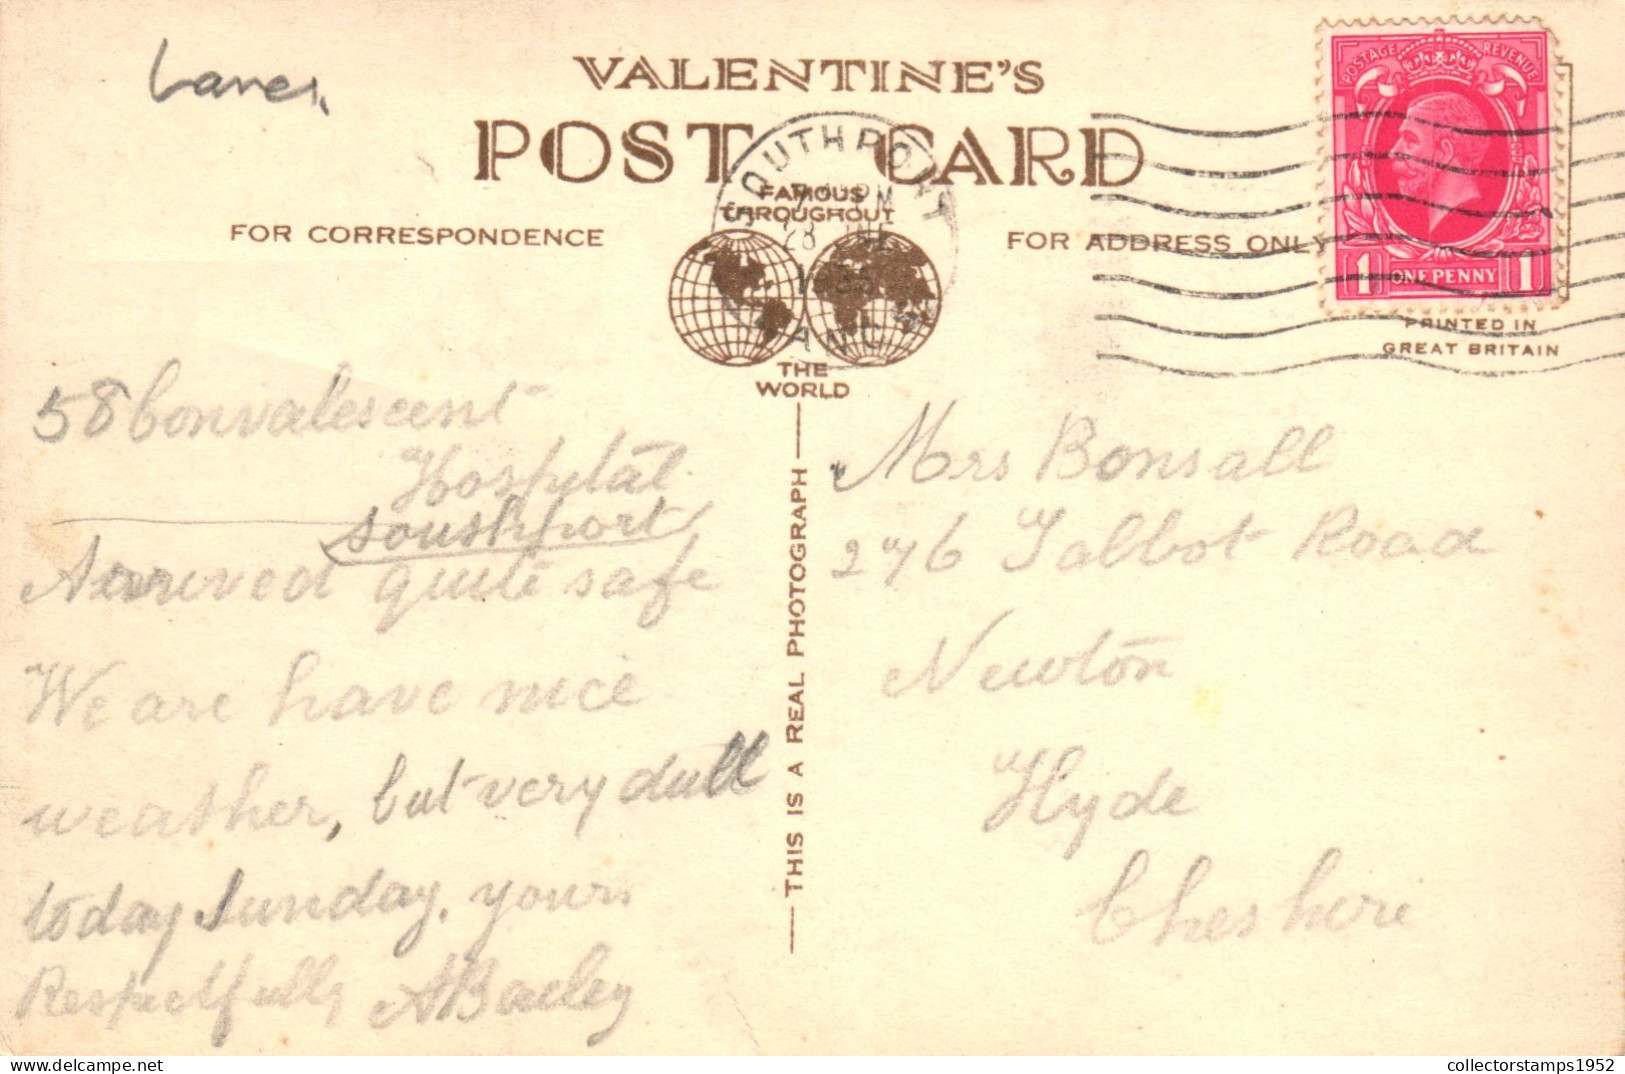 Lancs.
VALENTINE'S
POST CARD
SOUTHPORT
28 JNE
LANCS
FAMOUS
THROUGHOUT
THE
WORLD
FOR CORRESPONDENCE
FOR ADDRESS ONLY
POSTAGE REVENUE
1 ONE PENNY 1
PRINTED IN
GREAT BRITAIN
58 Convalescent
Hospital
Southport
Arrived quite safe
We are have nice
weather, but very dull
today Sunday. yours
Respectfully ABailey
THIS IS A REAL PHOTOGRAPH
Mrs Bonsall
276 Talbot Road
Newton
Hyde
Cheshire
collectorstamps1952